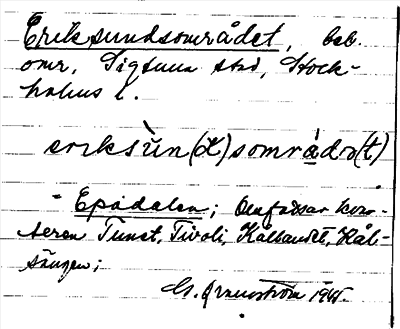 Eriksundsområdet, beb.
omr, Sigtuna stad, Stock-
holms l.
eriksùn(d)sområdə(t)
Epadalen; Omfattar kvar-
teren Tunet, Tivoli, Kållandet, Kål-
sängen;
1945.